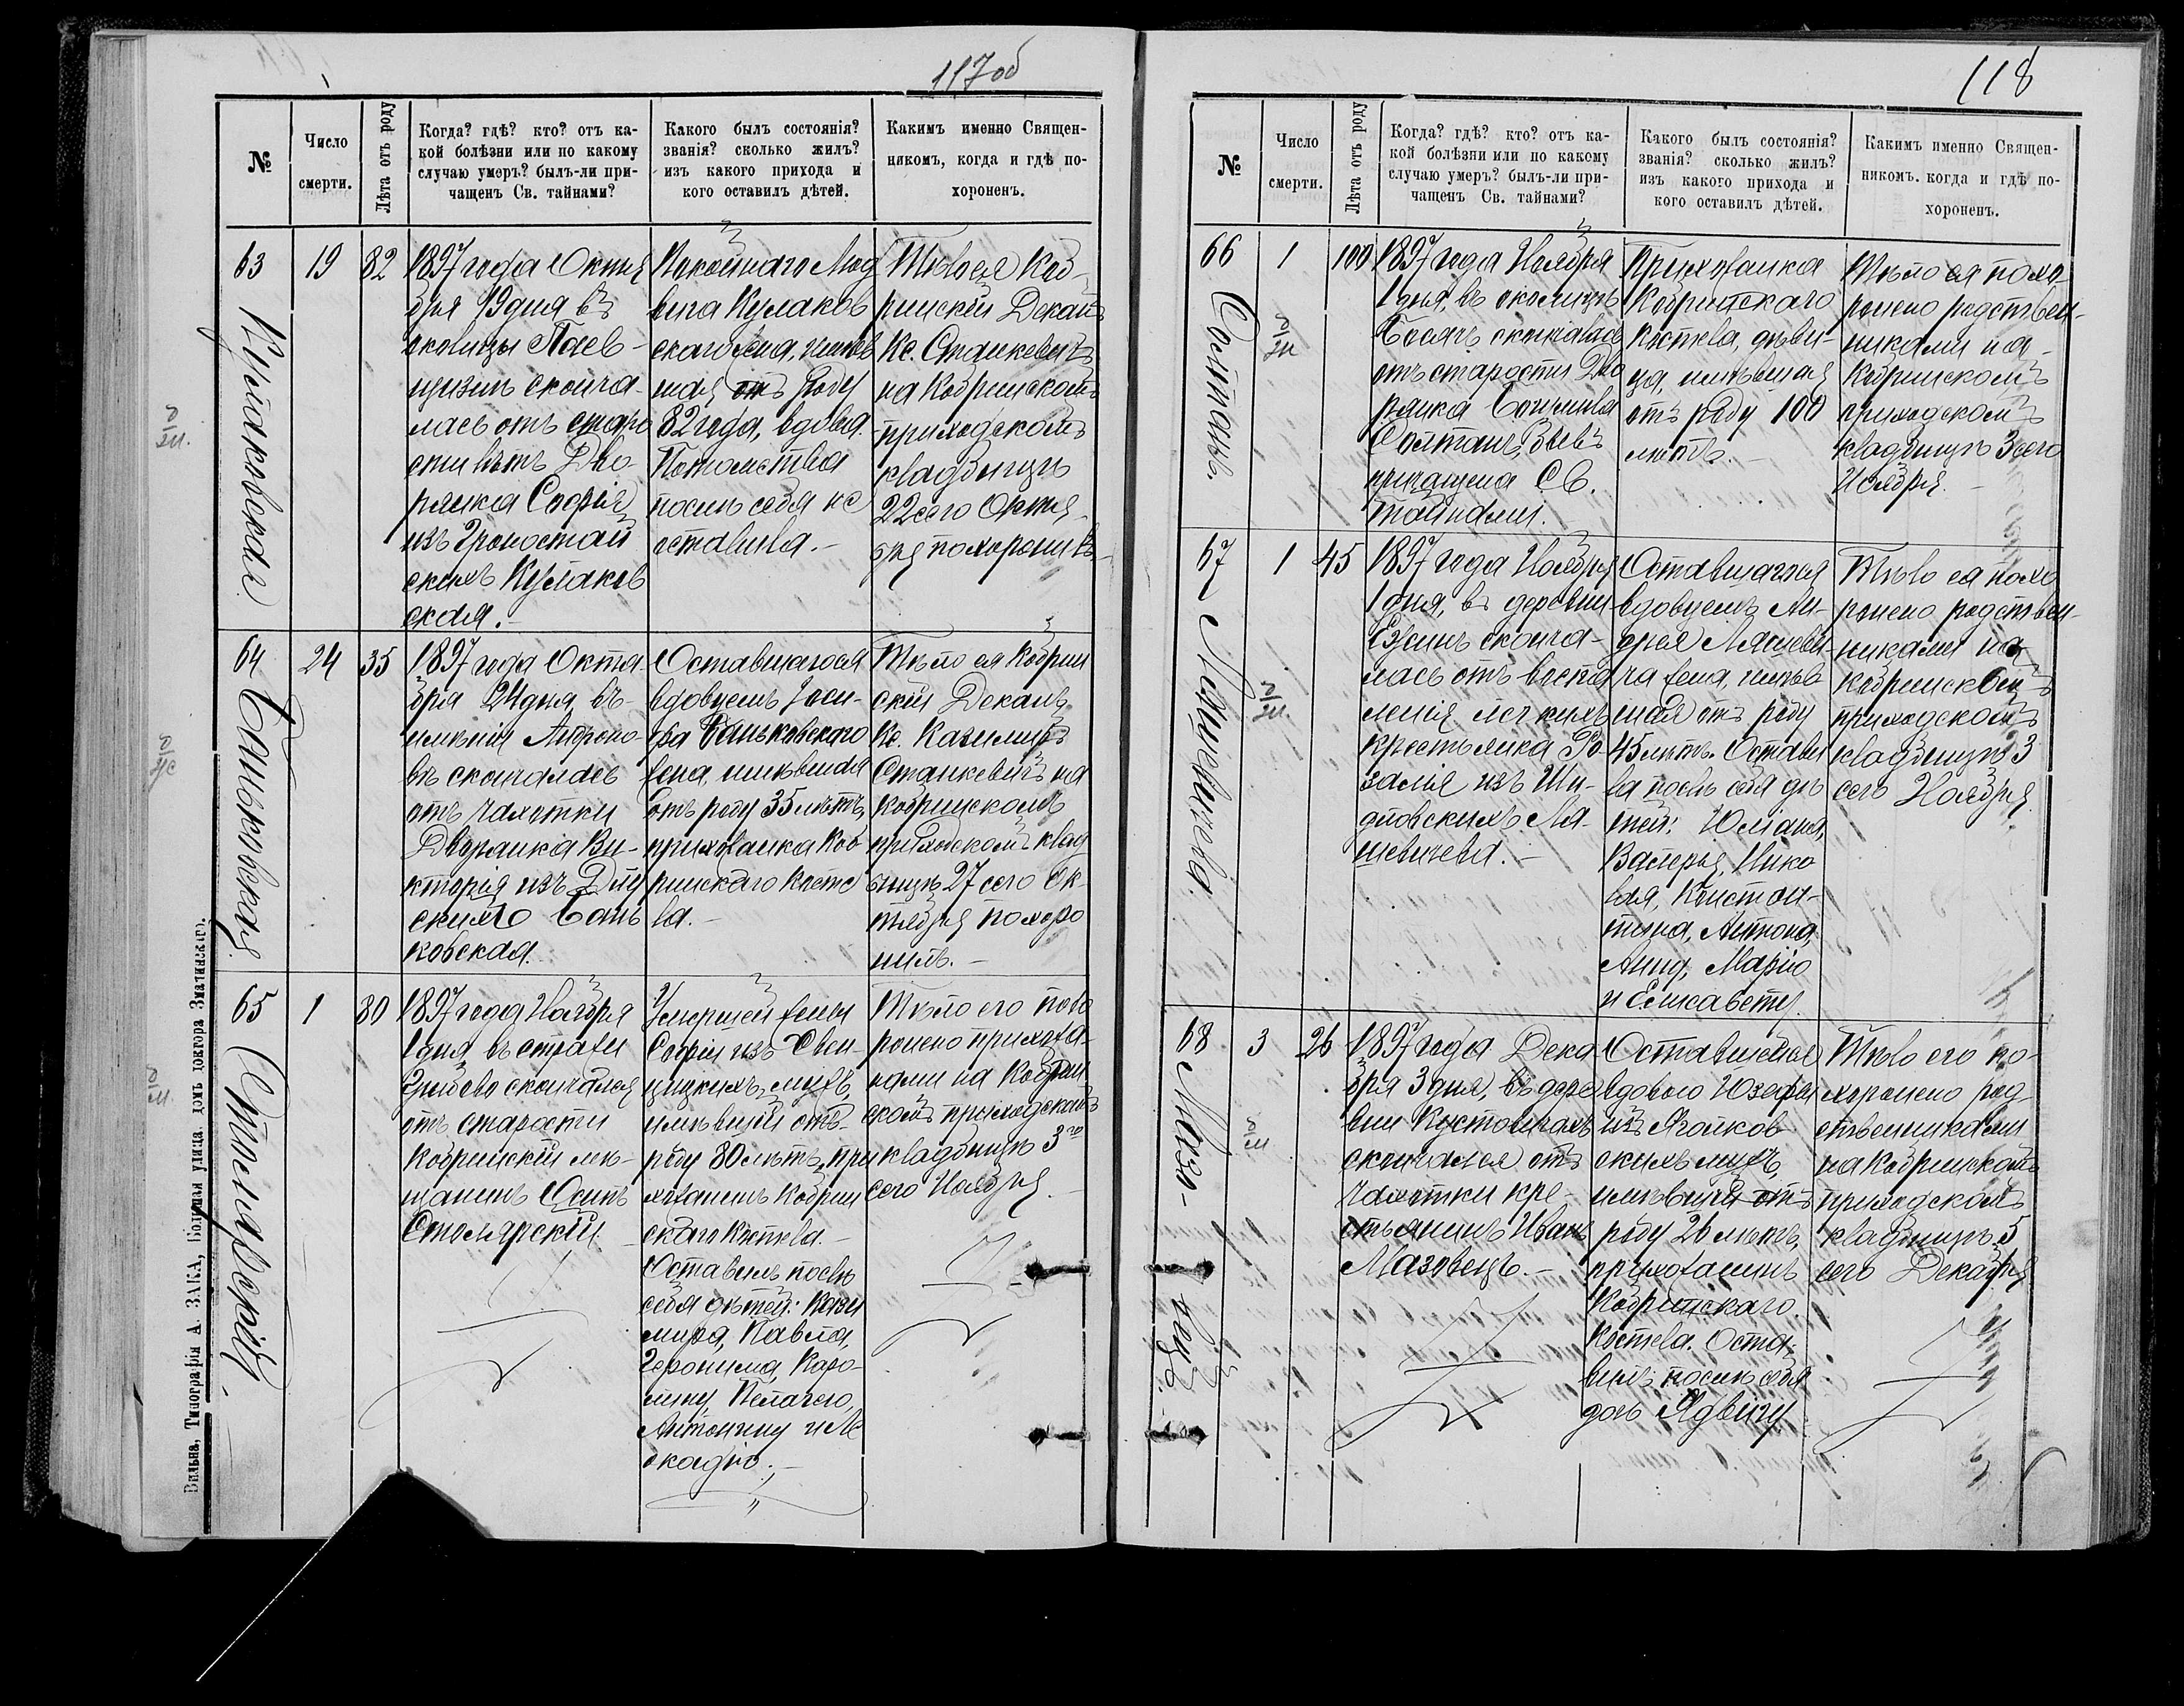 117об
№
Число
смерти.
Лѣта отъ роду
Когда? гдѣ? кто? отъ ка-
кой болѣзни или по какому
случаю умеръ? былъ-ли при-
чащенъ Св. тайнами?
Какого былъ состоянія?
званія? сколько жилъ?
изъ какого прихода и
кого оставилъ дѣтей.
Какимъ именно Священ-
никомъ, когда и гдѣ по-
хороненъ.
63
Кулаковская
19
82
1897 года Октя
бря 19 дня въ
околицы
сконча-
лась отъ старо
сти лѣтъ Дво-
рянка Софія
изъ Громостай
скихъ Кулаков
ская.-
Покойнаго Люд
вига Кулаков
скаго жена, имѣв
шая отъ роду
82 года, вдова.
Потомства
послѣ себя не
оставила.-
Тѣло ея Коб-
ринскій Деканъ
Кс. Станкевичъ
на Кобринскомъ
приходскомъ
кладбищѣ
22 сего Октя-
бря похоронилъ.-
64
Баньковская
24
35
1897 года Октя-
бря 24 дня въ
имѣніи Андроно-
вѣ скончалась
отъ чахотки
Дворянка Ви-
кторія изъ
скихъ Бань
ковская.
Оставшагося
вдовцемъ Іоси-
фа Баньковскаго
жена, имѣвшая
отъ роду 35 лѣтъ,
прихожанка Коб
ринскаго косте
ла.-
Тѣло ея Кобрин
скій Деканъ
Кс. Казиміръ
Станкевичъ на
Кобринскомъ
приходскомъ клад
бищѣ 27 сего Ок-
тября похоро
нилъ.-
65
Столярскій.
1
80
1897 года Ноября
1 дня въ
скончался
отъ старости
Кобринскій мѣ-
щанинъ Осипъ
Столярскій.
Умершей жены
Софіи изъ Свен-
цицкихъ мужъ,
имѣвшій отъ
роду 80 лѣтъ, при
хожанинъ Кобрин
скаго костела.-
Оставилъ послѣ
себя дѣтей: Кази
мира, Павла,
Іеронима, Каро-
лину, Пелагею,
Антонину и Ле
окадію.-
Тѣло его похо
ронено прихожа-
нами на Кобрин
скомъ приходскомъ
кладбищѣ 3го
сего Ноября.-
Вильна, Типографія А. ЗАКА, Большая улица, домъ доктора
118
№
Число
смерти.
Лѣта отъ роду
Когда? гдѣ? кто? отъ ка-
кой болѣзни или по какому
случаю умеръ? былъ-ли при-
чащенъ Св. тайнами?
Какого былъ состоянія?
званія? сколько жилъ?
изъ какого прихода и
кого оставилъ дѣтей.
Какимъ именно Священ-
никомъ. когда и гдѣ по-
хороненъ.
66
Солтанъ.
1
100
1897 года Ноября
1 дня, въ околицѣ
скончалась
отъ старости Дво
рянка
Солтанъ,
причащена Св.
Тайнами.
Прихожанка
Кобринскаго
костела, дѣви-
ца, имѣвшая
отъ роду 100
лѣтъ.-
Тѣло ея похо-
ронено родствен-
никами на
Кобринскомъ
приходскомъ
кладбищѣ 3 сего
Ноября.-
67
Ляшевичева.
1
45
1897 года Ноября
1 дня, въ деревни
сконча-
лась отъ воспа
ленія легкихъ
крестьянка Ро
залія изъ Ши-
довскихъ Ля-
шевичева.-
Оставшагося
вдовцемъ Ан-
дрея Ляшеви-
ча жена, имѣв
шая отъ роду
45 лѣтъ. Остави
ла послѣ себя дѣ
тей: Юліана,
Валерія, Нико
лая, Констан-
тина, Антона,
Анну, Марію
и Елисавету.
Тѣло ея похо
ронено родствен-
никами на
Кобринскомъ
приходскомъ
кладбищѣ 3
сего Ноября.
68
Мазо-
вецъ.
3
26
1897 года Дека
бря 3 дня, въ дере
вни Кустовичахъ
скончался отъ
чахотки кре-
стьянинъ Иванъ
Мазовецъ.-
Оставшейся
вдовою Юзефы
изъ
скихъ мужъ,
имѣвшій отъ
роду 26 лѣтъ,
прихожанинъ
Кобринскаго
костела. Оста-
вилъ послѣ себя
дочь Ядвигу.
Тѣло его по-
хоронено род-
ственниками
на Кобринскомъ
приходскомъ
кладбищѣ 5
сего Декабря